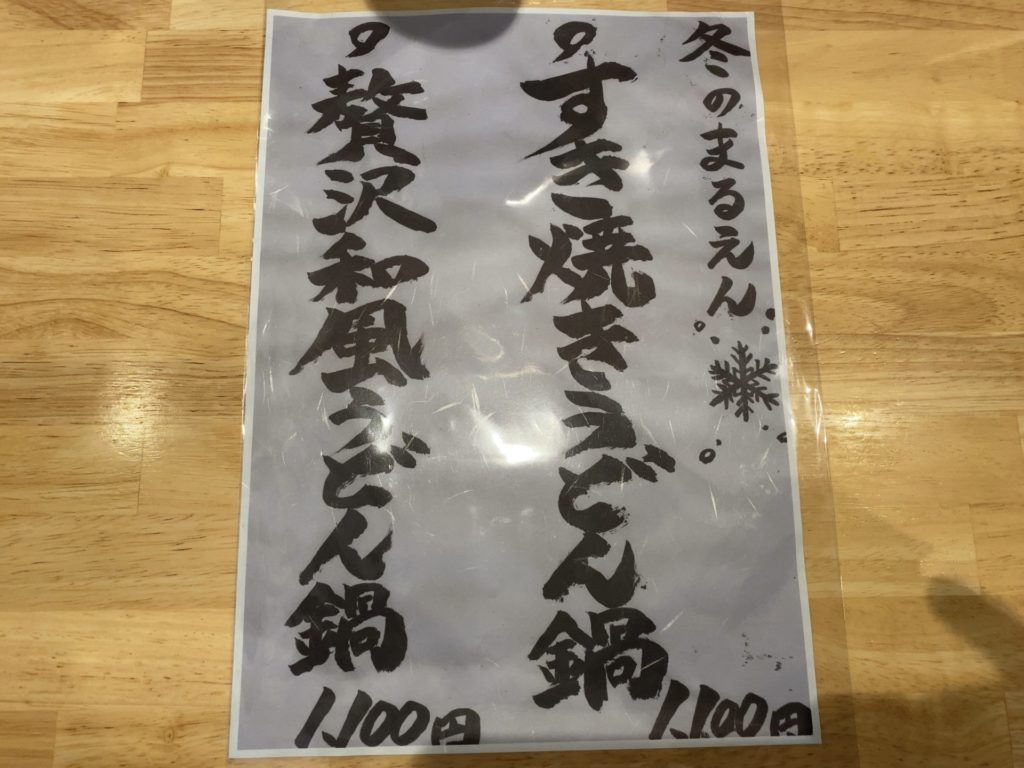 冬のまるえん
○すき焼きうどん鍋
1,100円
○贅沢和風うどん鍋
1,100円